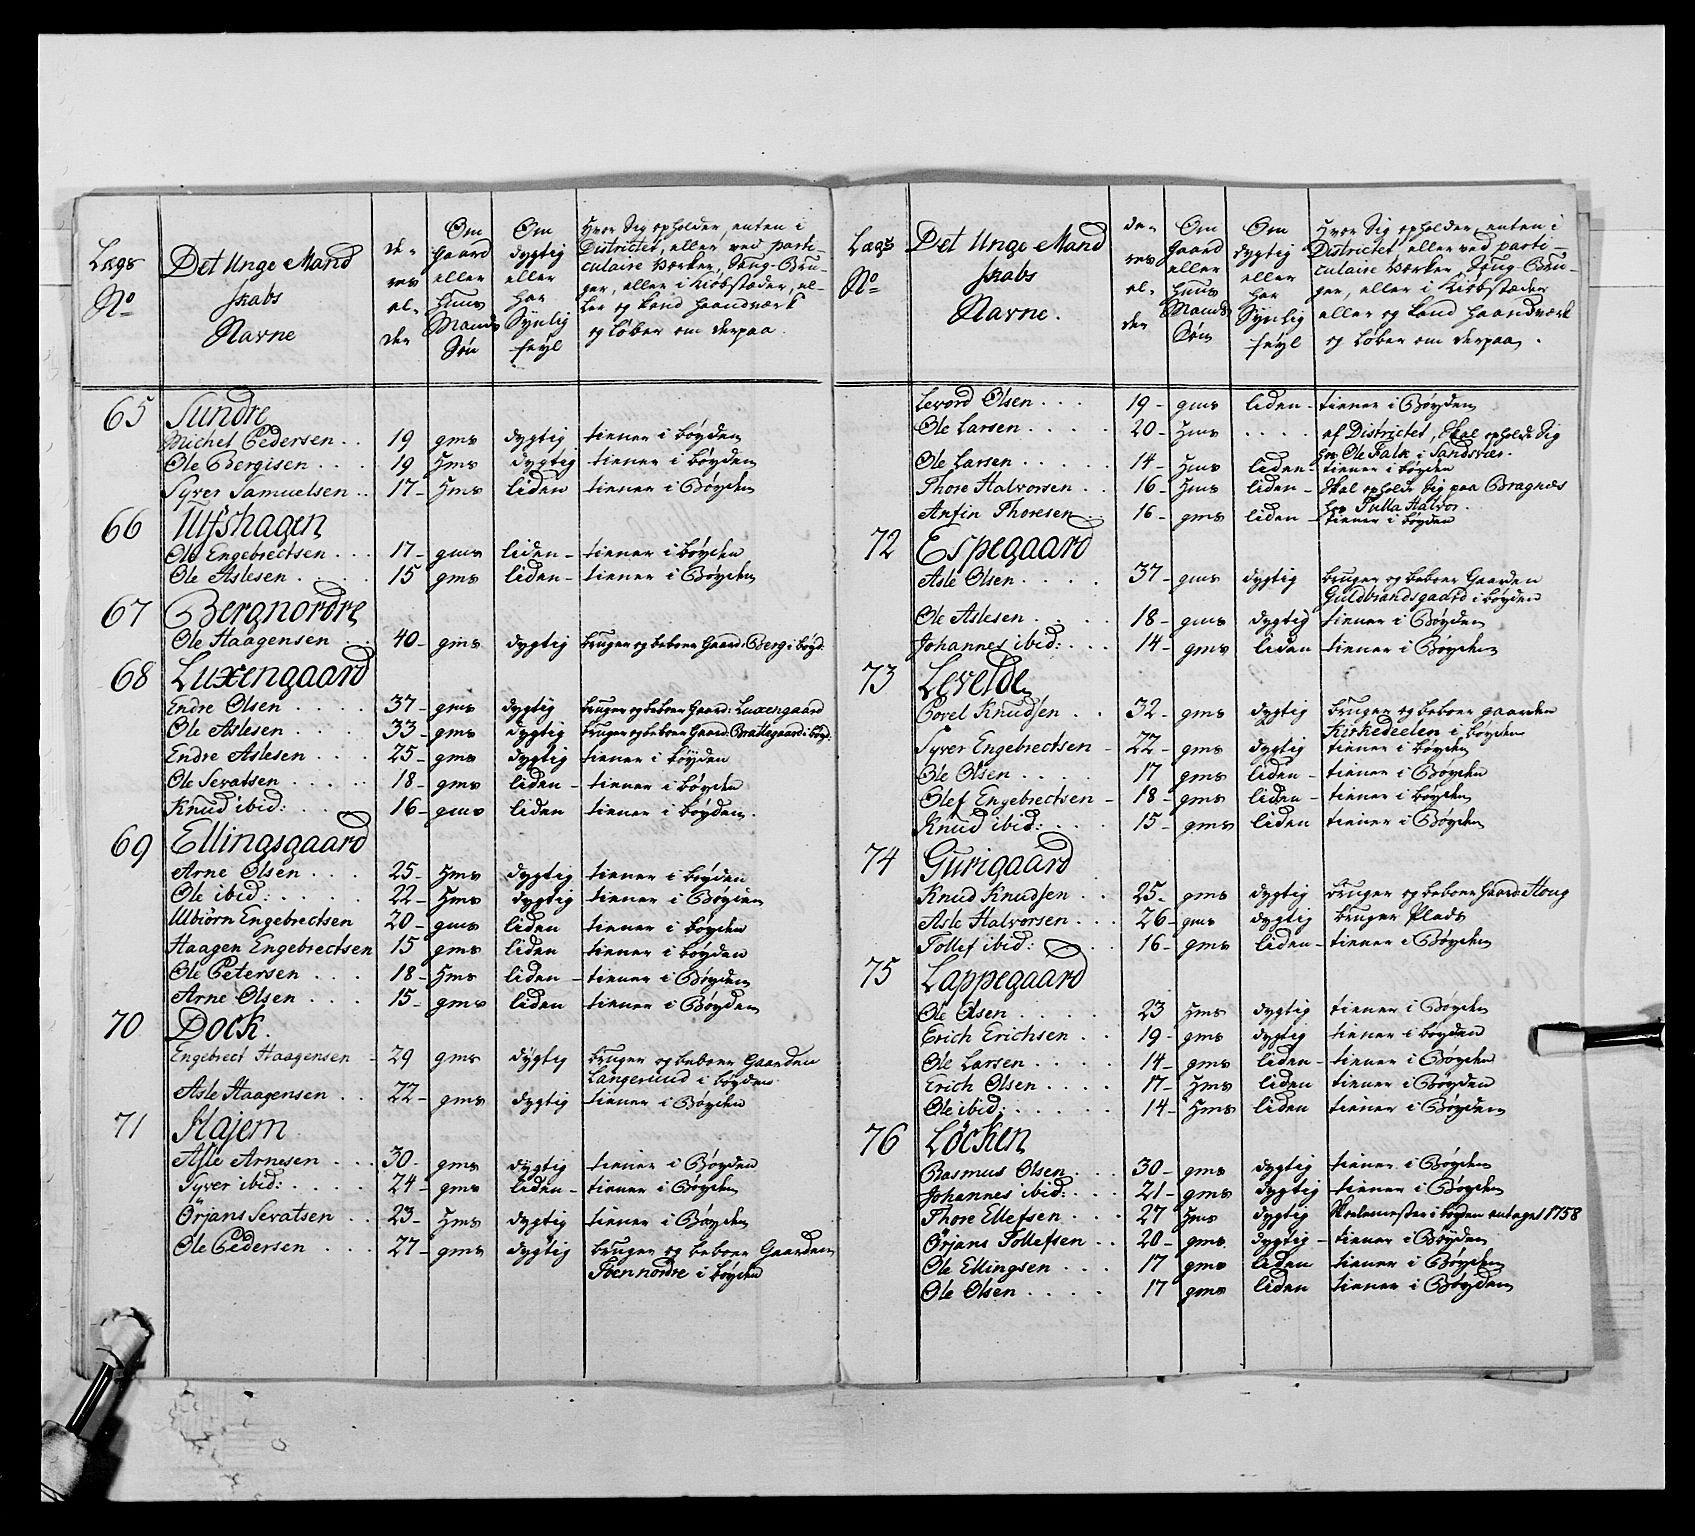 Lægs
No
Det Unge Mand
skabs
Navne
de-
res
al-
der
Om
Gaard
eller
Huus
Mands
Søn
Om
dygtig
eller
har
Synlig
feyl
Hvor Sig opholder, enten i
Districtet, eller ved parti-
culaire Værker, Saug-Bru-
ger, eller i Kiøbstæder, el-
ler og kand haandværk
og løber om derpaa.
65 Sundre
Michel Pedersen . . 19 gms dygtig tiener i bøyden
Ole Bergisen . . . 19 Hms dygtig tiener i bøyden
Syver Samuelsen . . 17- Hms liden tiener i Bøyden
66 Ulfshagen
Ole Engebrectsen . . . 17- gms liden- tiener i bøyden
Ole Aslesen . . . . 15 gms liden- tiener i Bøyden
67 Bergnordre
Ole Haagensen . . 40- gms dygtig bruger og beboer Gaard: Berg i bøyd:
68 Luxengaard
Endre Olsen . . . . 37- gms dygtig bruger og beboer Gaard: Luxengaard
Ole Aslesen . . . . 33- gms dygtig bruger og beboer Gaard: Brattegaard i bøyd:
Endre Aslesen . . . 25- gms dygtig tiener i bøyden
Ole Sevatsen . . . 18- gms liden- tiener i bøyden
Knud ibid: . . . . 16- gms liden tiener i bøyden.
69 Ellingsgaard
Arne Olsen . . . 25- Hms dygtig tiener i bøyden
Ole ibid: . . . . 22- Hms dygtig tiener i Bøyden
Ulbiørn Engebrectsen 20- gms liden tiener i bøyden
Haagen Engebrectsen 15 gms liden tiener i bøyden
Ole Petersen . . . 18- Hms liden- tiener i Bøyden
Arne Olsen . . . 15- gms liden tiener i Bøyden
70 Dock.
Engebrect Haagensen - 29 gms dygtig bruger og beboer Gaarden
Langerund i bøyden
Asle Haagensen . . 22- gms dygtig tiener i Bøyden
71 Hajem
Asle Arnesen . . . 30- gms dygtig tiener i Bøyden
Syver ibid: . . . . 24- gms liden- tiener i Bøyden
Orjans Sevatsen . . 23- Hms dygtig tiener i Bøyden
Ole Pedersen . . . 27- gms dygtig bruger og beboer Gaarden
Toennordre i bøyden
Lægs
No
Det Unge Mand
skabs
Navne.
de-
res
al-
der
Om
Gaard
eller
Huus
Mands
Søn
Om
dygtig
eller
har
Synlig
feyl
Hvor Sig opholder, enten i
Districtet eller ved parti-
culaire Værker, Saug-Bru-
ger, eller i Kiøbstæder
eller og kand haandværk
og løber om derpaa.
Levord Olsen . . . 19- gms liden- tiener i Bøyden
Ole Larsen . . . . 20- Hms . . . . af Districtet, Skal opholde Sig
hr Ole Falk i Sandsvær.
Ole Larsen . . . . . 14- Hms liden- tiener i bøyden
Thore Halvorsen . . . 16- Hms liden- Skal opholde Sig paa Bragnæs
hos Tulla Halvor.
Anfin Thoresen . . 16- gms liden- tiener i bøyden
72 Espegaard
Asle Olsen . . . . 37- gms dygtig bruger og beboer Gaarden
Guldbrandsgaard i bøyden
Ole Aslesen . . . . 18- gms dygtig tiener i Bøyden
Johannes ibid: . . . 14- gms liden tiener i Bøyden
73 Levelde
Povel Knudsen . . 32- gms dygtig bruger og beboer gaarden
Kirkedeelen i bøyden
Syver Engebrectsen - 22- gms dygtig tiener i bøyden
Ole Olsen . . . . 17 gms liden- tiener i Bøyden
Olef Engebrectsen - 18- gms liden- tiener i bøyden
Knud ibid: . . . 15- gms liden tiener i Bøyden
74 Gurigaard
Knud Knudsen . . 25- gms dygtig bruger og beboer Gaard: Houg
Asle Halvorsen . . . 26- gms dygtig bruger Plads
Tollef ibid: . . . 16- gms liden- tiener i Bøyden
75 Lappegaard
Ole Olsen . . . . . 23 Hms dygtig tiener i Bøyden
Erich Erichsen . . 19- gms dygtig tiener i bøyden
Ole Larsen . . . . 14- gms liden- tiener i Bøyden
Erich Olsen . . . . 17- Hms liden tiener i Bøyden
Ole ibid: . . . . . 14- Hms liden tiener i Bøyden
76 Løcken
Rasmus Olsen . . . 30- gms dygtig tiener i Bøyden
Johannes ibid: . . . 21- gms dygtig tiener i Bøyden
Thore Ellefsen . . . 27 Hms dygtig Skolemester i bøyden antaget 1758
Orjans Tollefsen . . 20- gms dygtig- tiener i Bøyden
Ole Ellingsen . . . 17 gms liden tiener i Bøyden
Ole Olsen . . . . 17 gms liden tiener i Bøyden